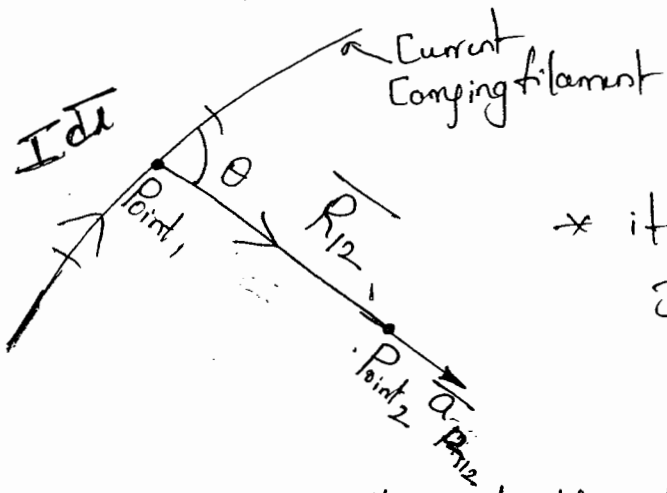 Current
Carrying filament
I dl
θ
Point 1
R12
* it
P
Point 2
a R12